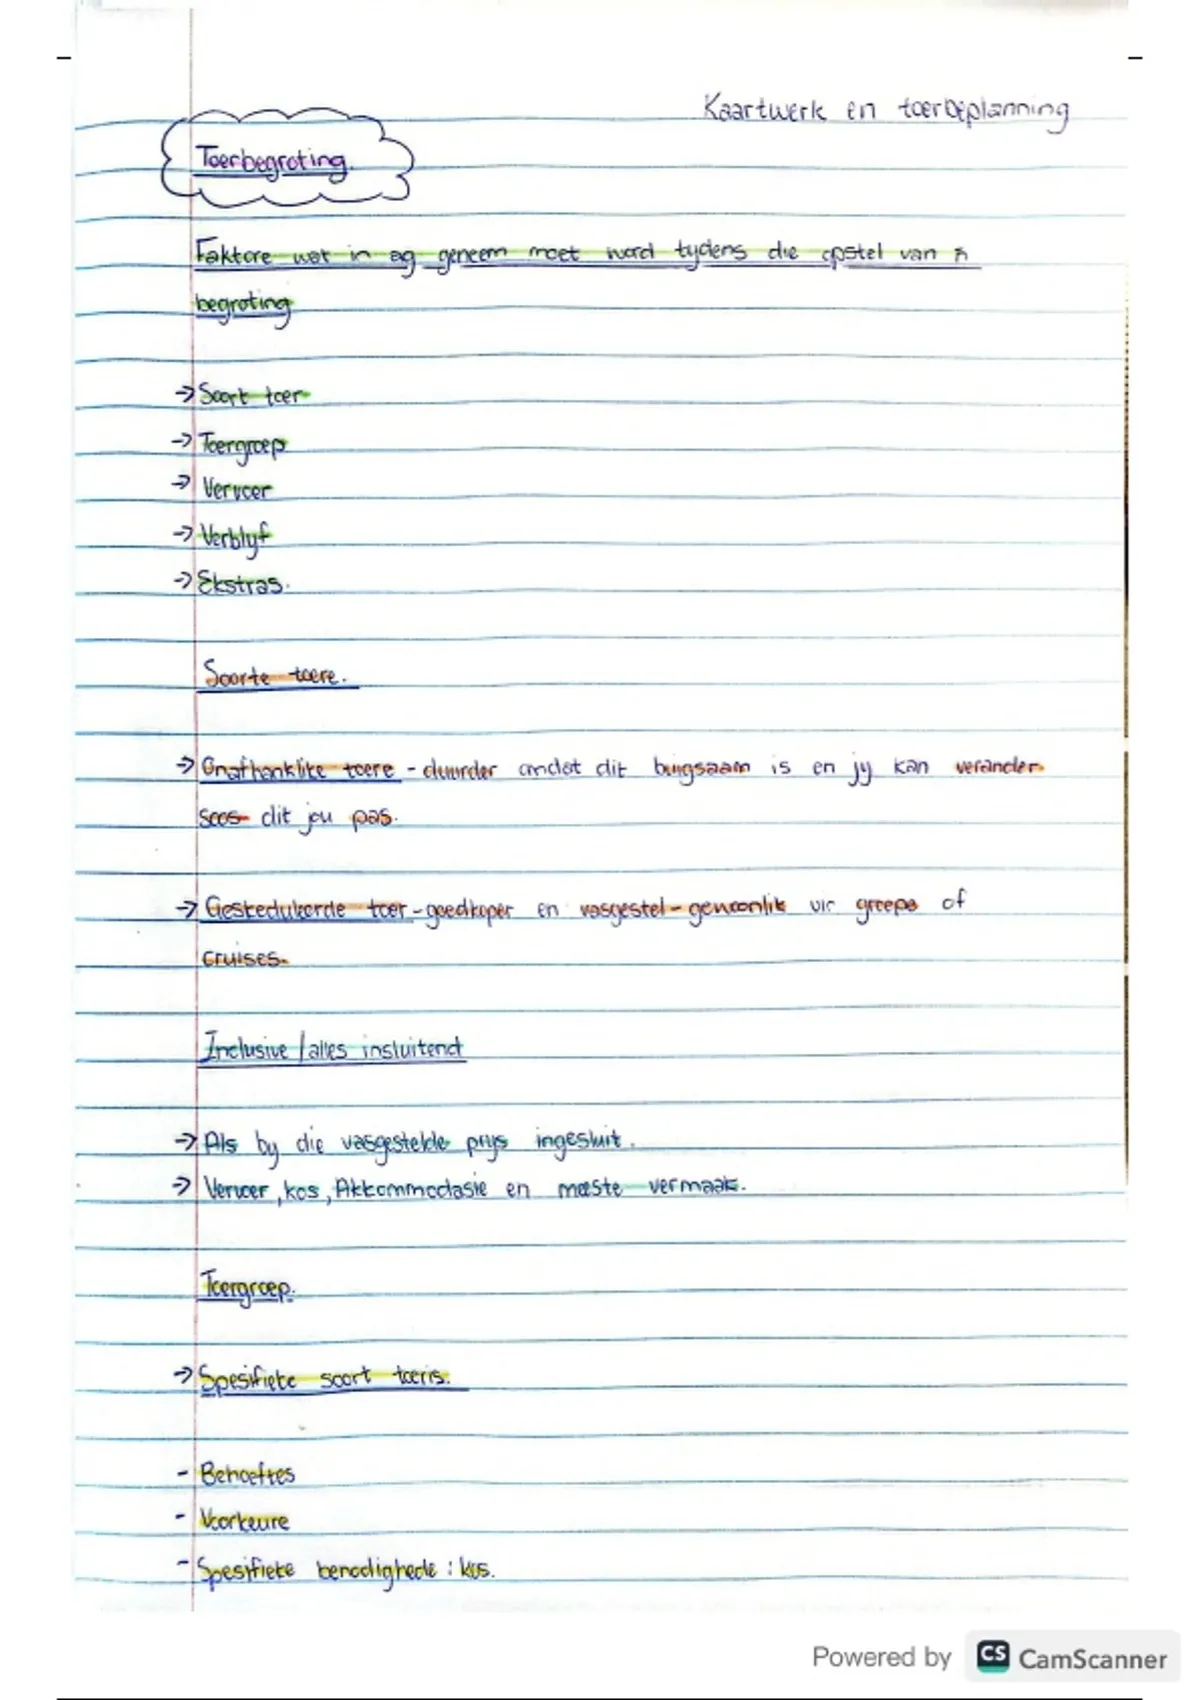 Kaartwerk en toerbeplanning
Toerbegroting.
Faktore wat in ag geneem moet word tydens die opstel van 'n
begroting
→ Soort toer
→ Toergroep
→ Vervoer
→ Verblyf
→ Ekstras.
Soorte toere.
→ Onafhanklike toere - duurder omdat dit buigsaam is en jy kan verander
soos dit jou pas.
→ Geskeduleerde toer - goedkoper en vasgestel - gewoonlik vir groepe of
cruises.
Inclusive / alles insluitend
→ Als by die vasgestelde prys ingesluit.
→ Vervoer, kos, Akkommodasie en meeste vermaak.
Toergroep.
→ Spesifieke soort toeris.
- Behoeftes
- Voorkeure
- Spesifieke benodighede : kos.
Powered by CS CamScanner